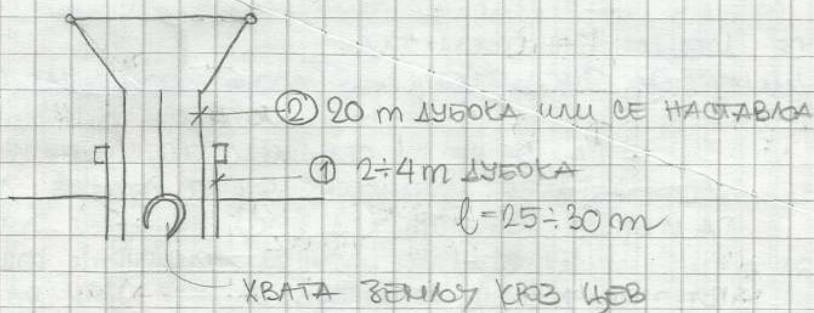 ② 20 m ДУБОКА ИЛИ СЕ НАСТАВЉА
① 2÷4 m ДУБОКА
l = 25÷30 m
ХВАТА ЗЕМЉУ КРОЗ ЦЕВ